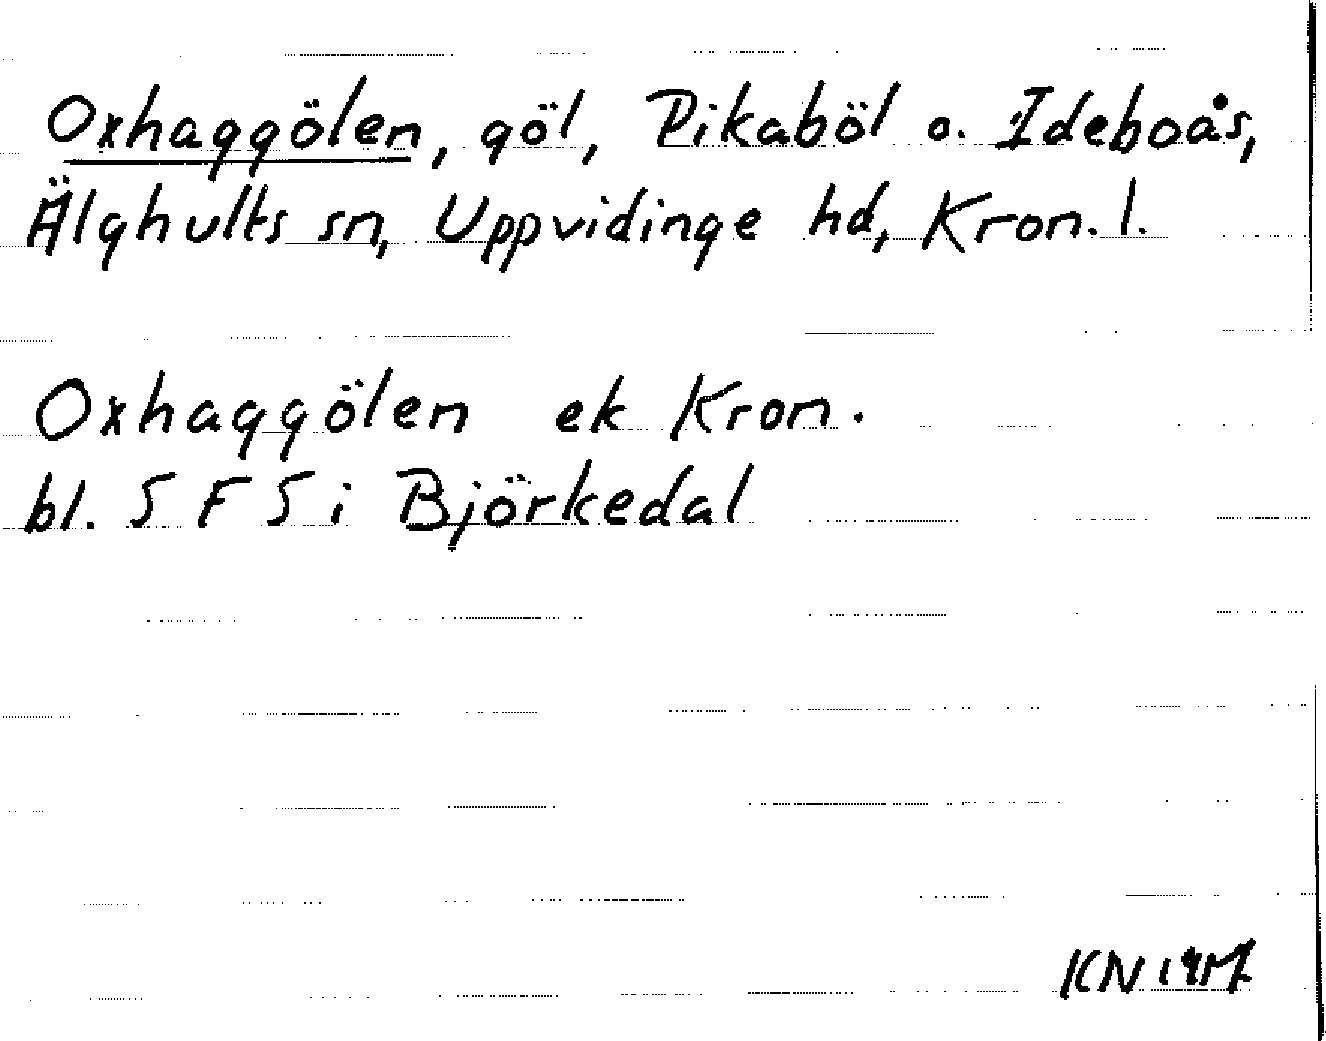 Oxhaggölen, göl, Pikaböl o. Ideboås,
Älghults sn, Uppvidinge hd, Kron. l.
Oxhaggölen ek Kron.
bl. S F S i Björkedal
KN